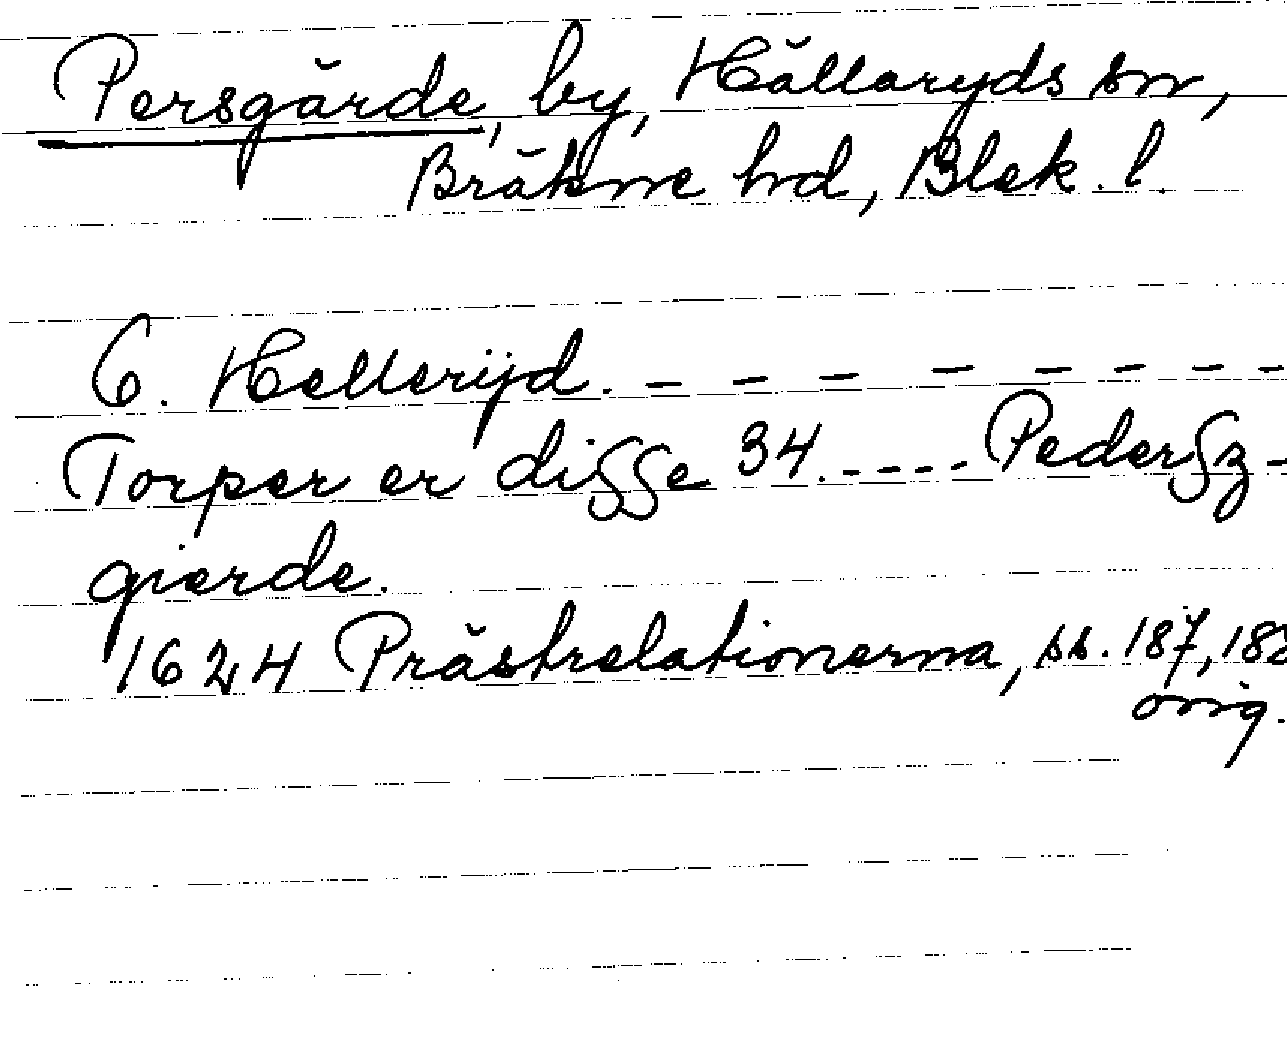 Persgärde, by, Hällaryds sn,
Bräkne hd, Blek. l.
6. Hellerijd. - - - - - - - -
Torper er disse 34. ---- Pedersz-
gierde.
1624 Prästrelationerna, ss. 187, 188
orig.